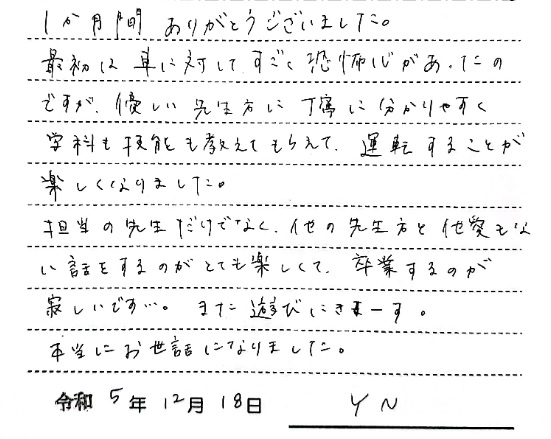 1か月間 ありがとうございました。
最初は車に対してすごく恐怖心があったの
ですが、優しい先生方に丁寧に分かりやすく
学科も技能も教えてもらえて、運転することが
楽しくなりました。
担当の先生だけでなく、他の先生方と他愛もな
い話をするのがとても楽しくて、卒業するのが
寂しいです…。また遊びにきまーす。
本当にお世話になりました。
令和 5年 12月 18日 YN